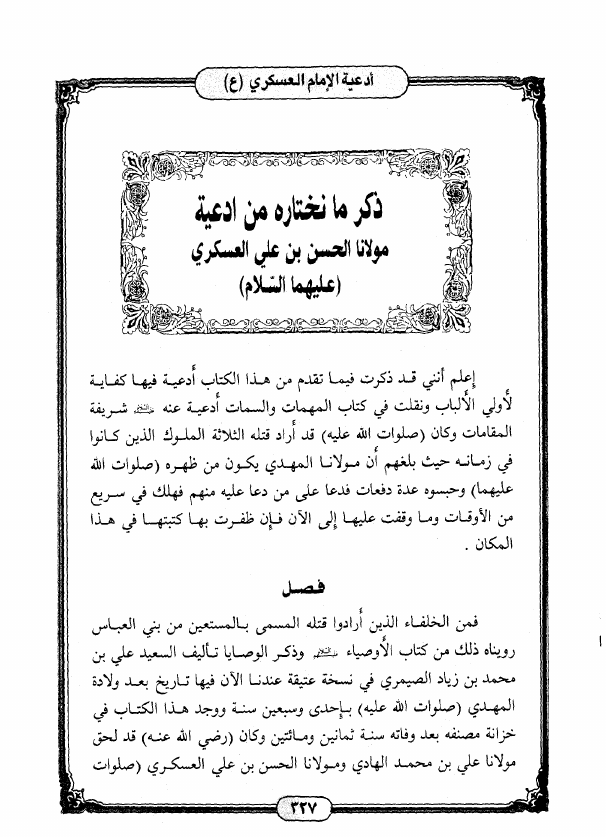 أدعية الإمام العسكري (ع)
ذكر ما نختاره من ادعية
مولانا الحسن بن علي العسكري
(عليهما السّلام)
إعلم أنني قد ذكرت فيما تقدم من هذا الكتاب أدعية فيها كفاية
لأولي الألباب ونقلت في كتاب المهمات والسمات أدعية عنه شريفة
المقامات وكان (صلوات الله عليه) قد أراد قتله الثلاثة الملوك الذين كانوا
في زمانه حيث بلغهم أن مولانا المهدي يكون من ظهره (صلوات الله
عليهما) وحبسوه عدة دفعات فدعا على من دعا عليه منهم فهلك في سريع
من الأوقات وما وقفت عليها إلى الآن فإن ظفرت بها كتبتها في هذا
المكان .
فصل
فمن الخلفاء الذين أرادوا قتله المسمى بالمستعين من بني العباس
روينا ذلك من كتاب الأوصياء وذكر الوصايا تأليف السعيد علي بن
محمد بن زياد الصيمري في نسخة عتيقة عندنا الآن فيها تاريخ بعد ولادة
المهدي (صلوات الله عليه) بإحدى وسبعين سنة ووجد هذا الكتاب في
خزانة مصنفه بعد وفاته سنة ثمانين ومائتين وكان (رضي الله عنه) قد لحق
مولانا علي بن محمد الهادي ومولانا الحسن بن علي العسكري (صلوات
٣٢٧